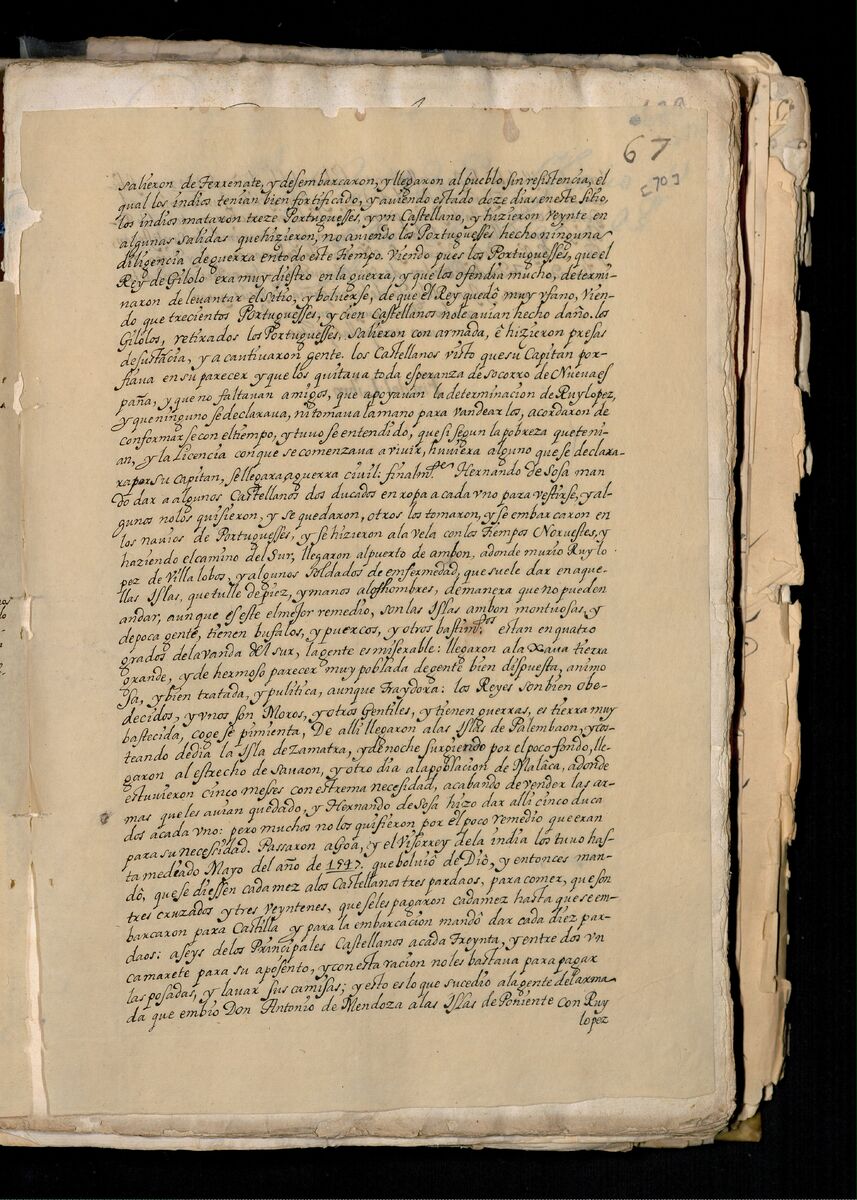 67
[70]
salieron de Terrenate, y desembarcaron, y llegaron al pueblo sin resistencia, el
qual los indios tenian bien fortificado, y auiendo estado doze dias en este sitio,
los indios mataron treze Portuguesses, y vn Castellano, y hizieron veynte en
algunas salidas que hizieron, no auiendo los Portuguesses hecho ninguna
diligencia de guerra en todo este tiempo. Viendo pues los Portuguesses, que el
Rey de Gilolo era muy diestro en la guerra, y que los ofendia mucho, determi-
naron de levantar el sitio, y boluerse, de que el Rey quedô muy vfano, vien-
do que trecientos Portuguesses, y cien Castellanos no le auian hecho daño. los
Gilolos, retirados los Portuguesses, salieron con armada, ê hizieron presas
de sustãcia, y a cantiuaron gente. los Castellanos visto que su Capitan por-
fiava en su parecer y que los quitava toda esperanza de socorro de Nueva es
paña, y que no faltavan amigos, que apoyavan la determinacion de Ruylopez,
y que ninguno se declarava, ni tomava la mano para vandearlos, acordaron de
conformarse con el tiempo, y tuvo se entendido, que si segun la pobreza que teni-
an, y la Licencia con que se comenzava a vivir, huviera alguno que se declara-
ra por su capitan, se llegara a guerra civil: finalmte. Hernando de Sosa man
dô dar a algunos Castellanos dos ducados en ropa a cada vno para vestirse, y al-
gunos nolos quisieron, y se quedaron, otros los tomaron, y se embarcaron en
los navios de Portuguesses, y se hizieron a la vela con los tiempos Noruestes, y
haziendo el camino del Sur, llegaron al puerto de ambon, adonde murio Ruy lo
pez de Villa lobos, y algunos soldados de enfermedad, que suele dar en aque-
llas Islas, que tulle de piez, y manos a los hombres, de manera que no pueden
andar, aunque es este el mejor remedio, son las Islas ambon montuosas, y
de poca gente, tienen bufalos, y puercos, y otros bastimtos. estan en quatro
grados de la vanda del sur, la gente es miserable: llegaron a la Xaua tierra
grande, y de hermoso parecer muy poblada de gente bien dispuesta, animo
sa, y bien tratada, y pulitica, aunque traydora: los Reyes son bien obe-
decidos, y vnos son Moros, y otros Gentiles, y tienen guerras, es tierra muy
bastecida, coge se pimienta, De alli llegaron a las Islas de Palembaon, y cos-
teando de dia la Isla de Zamatra, y de noche surgiendo por el poco fondo, lle-
garon al estrecho de Savaon, y otro dia a la poblacion de Malaca, adonde
estuvieron cinco meses con estrema necesidad, acabando de vender las ar-
mas que les auian quedado, y Hernando de Sosa hizo dar alli cinco duca
dos acada vno: pero muchos no los quisieron por el poco remedio que eran
para su necesidad. Passaron a Goa, y el Visorrey de la india los tuvo has-
ta mediado Mayo del año de 1547. que boluiô de Diô, y entonces man-
dô, que se diessen cada mez a los Castellanos tres pardaos, para comer, que son
tres cruzados y tres veyntenes, que se les pagaron cada mez hasta que se em-
barcaron para Castilla y para la embarcacion mandô dar cada diez par-
daos: a seys de los Principales Castellanos acada treynta, y entre dos vn
camarete para su aposento, y con esta racion no les bastava para pagar
las posadas, y lauar sus camisas; y esto es lo que sucedio a la gente del arma
da que embio Don Antonio de Mendoza a las Islas de Poniente con Ruy
lopez